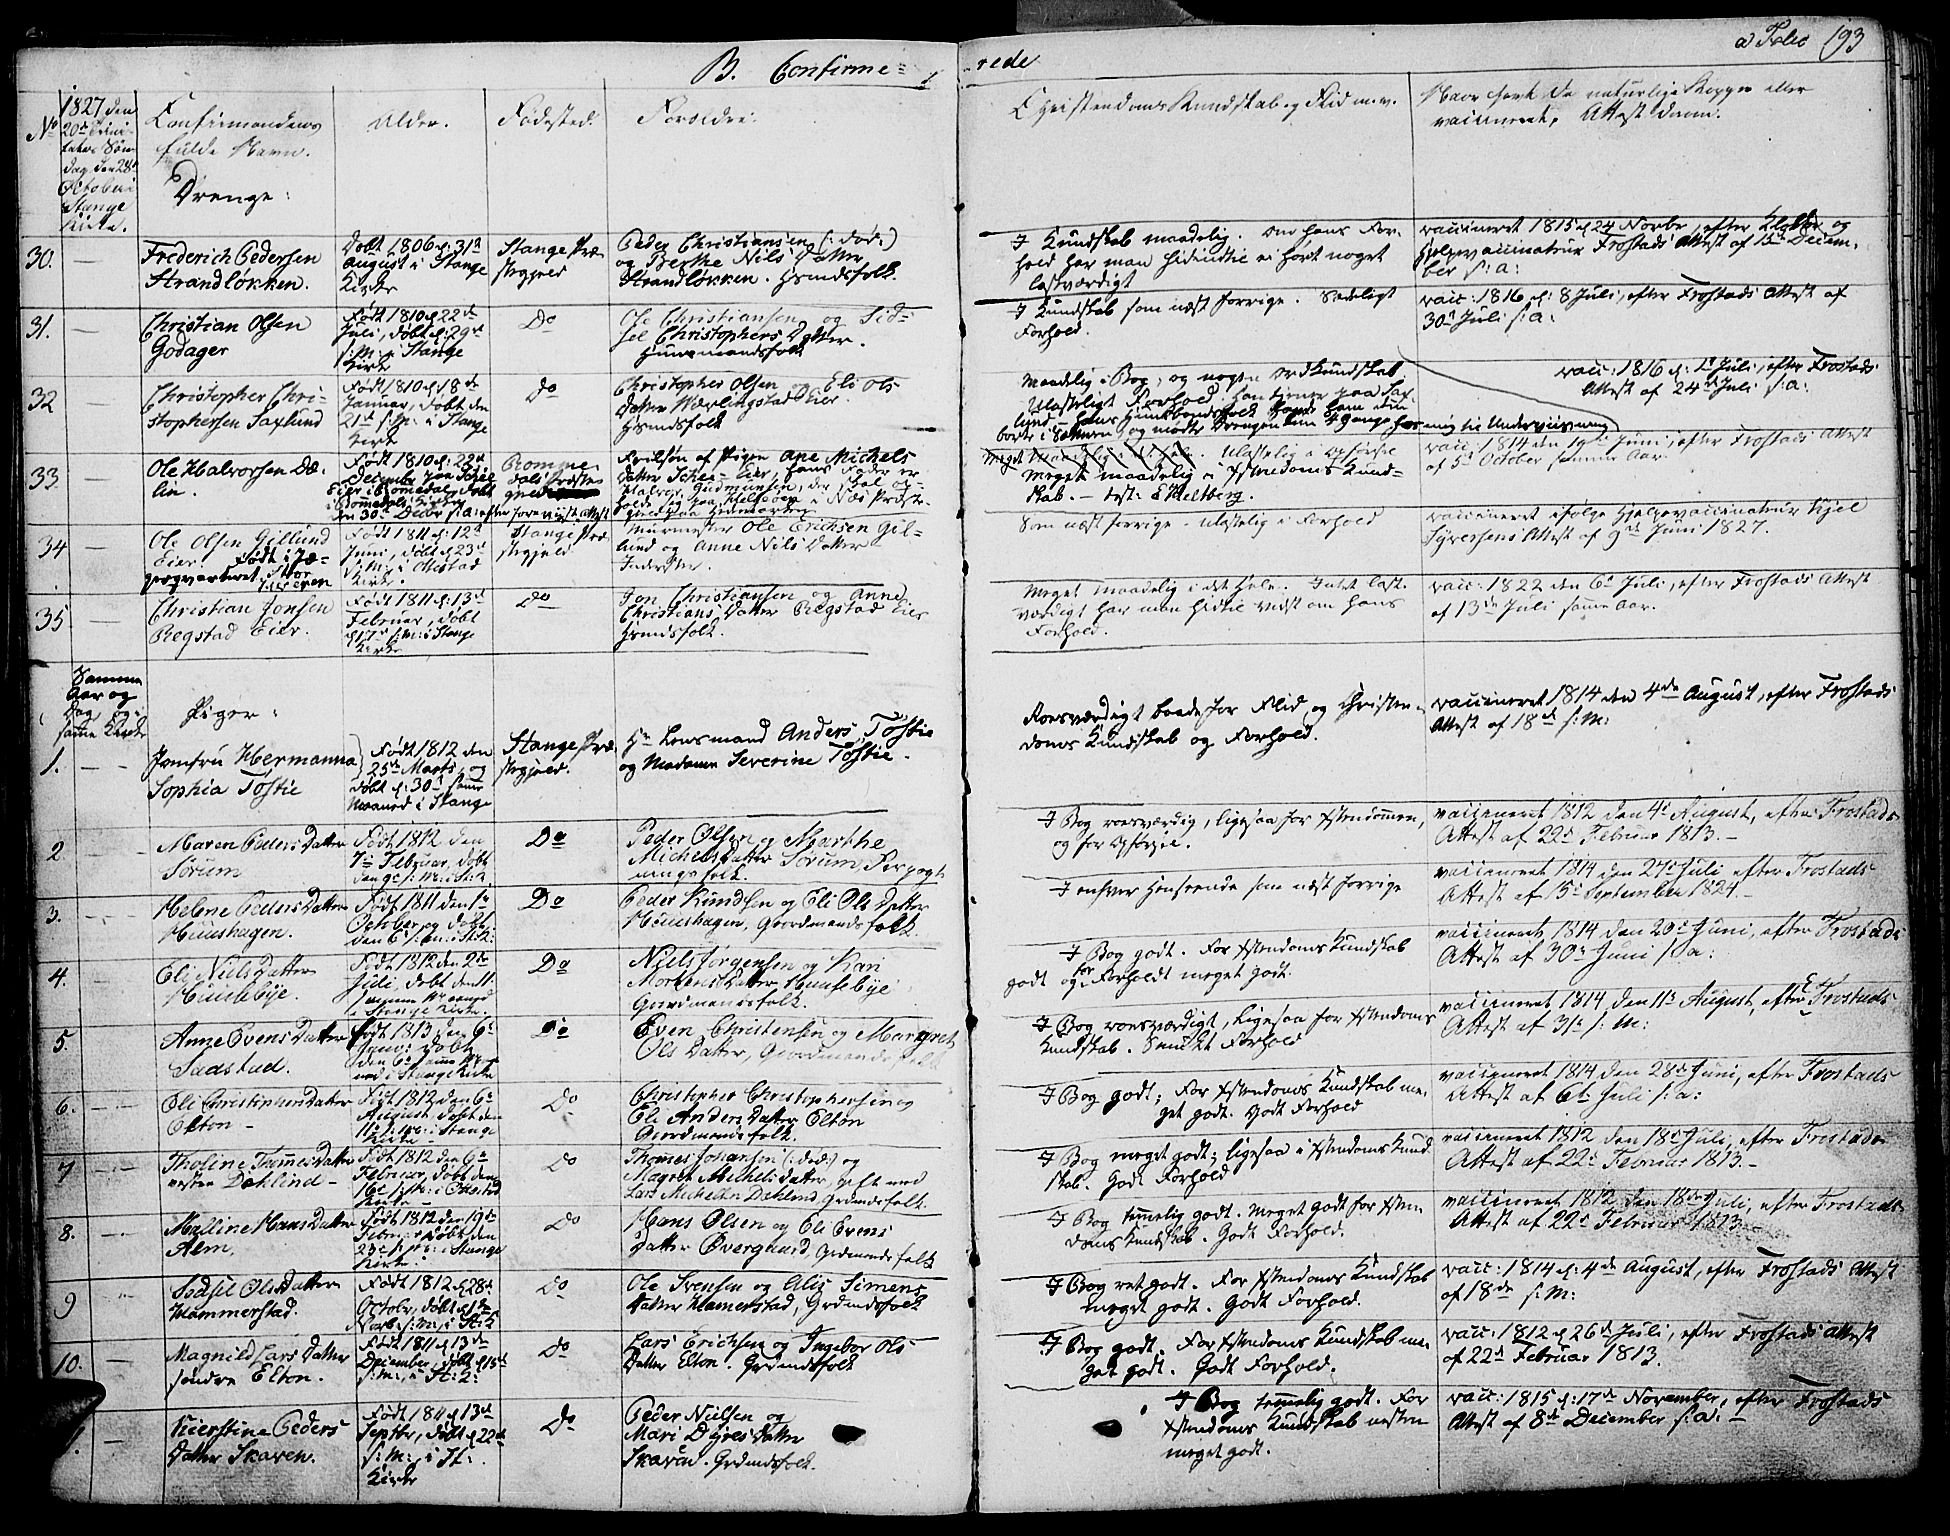 B. Confirme=
rede
a Folio 193
No
1827 den
20de Trini
tatis Søn
dag den 28de
October i
Stange
Kirke.
Confirmandens
fulde Navn.
Drenge:
Alder.
Fødested.
Forældre.
Christendoms Kundskab og Flid m.v.
Naar havt de naturlige Kopper eller
vaccineret, Attest derom.
30.
Friderich Pedersen
Strandløkken.
Døbt 1806 d. 31te
August i Stange
Kirke
Stange Præ
stegjeld
Peder Christiansen (: død:)
og Berthe Nils Datter
Strandløkken. Hsmdsfolk
I Kundskab maadelig. Om hans For-
hold har man hidindtil ei hørt noget
lastværdigt
vaccineret 1815 d 24 Novbr, efter Klokker og
Hjelpevaccinatur Frostads Attest af 15de Decem-
ber s: a:
31.
Christian Olsen
Godager
Født 1810 d 22de
Juli, døbt d. 29de
s: M: i Stange
Kirke
Do
Ole Christiansen og Sid-
sel Christophers Datter.
Huusmandsfolk
I Kundskab som næst forrige. Sædeligt
Forhold.
vacc: 1816 d: 8 Juli, efter Frostads Attest af
30te Juli s: a:
32
Christopher Chri-
stophersen Saxlund
Født 1810 d: 18de
Januar, døbt den
21de s: M: i Stange
Kirke
Do
Christopher Olsen og Eli Ols
Datter Wærlingstad Eier.
Hsmdsfolk
Maadelig i Bog, og nogen Kundskab
Ulasteligt Forhold. Han tjener paa Sax
lund
vacc: 1816 d: 1te Juli, efter Frostads
Attest af 24de Juli s: a:
33
Ole Halvorsen Dæ-
lin.
Født 1810 d: 22de
December
Romedal, døbt
i Romedals Kirke
den 30te Decbr s: a: efter foreviist Attest
Romme-
dals Præste
gjeld
Sønn af Pigen Ane Michels
Datter Eier, hans Fader er
Halvor Gudmunsen, der skal op-
holde sig
Meget maadelig i Xstendoms Kund-
skab. – test: E Heltberg.
vacc: 1814 den Juni, efter Frostads Attest
af 5te October samme Aar.
34
Ole Olsen Gillund
Eier. Født i Jæ-
gerqvarteret
Født 1811 d: 12te
Juni, døbt d 23de
s: M: i Ottestad
Kirke.
Stange Præ
stegjeld
Murmester Ole Erichsen Gil-
lund og Anne Nils Datter
Inderster.
Som næst forrige – ulastelig i Forhold
vaccineret ifølge Hjelpevaccinatur Kjel
Syversens Attest af 9de Juni 1827.
35
Christian Jonsen
Regstad Eier.
Født 1811 d: 13de
Februar, døbt
d 17de s: M: i Stange
Kirke
Do
Jon Christiansen og Anne
Christians Datter Regstad Eier
Hsmdsfolk.
Meget maadelig i det Hele. Intet last-
værdigt har man hidtil vidst om hans
Forhold.
vacc: 1822 den 6te Juli, efter Frostads Attest
af 13de Juli samme Aar.
Samme
Aar og
Dag og i
samme Kirke
Piger:
1.
Jomfru Hermanna
Sophia Tostie
Født 1812 den
25de Marts, og
døbt d: 30te samme
Maaned i Stange
Stange Præ
stegjeld.
Hr Lensmand Anders Tostie
og Madame Severine Tostie.
Roesværdigt baade for Flid og Christen-
doms Kundskab og Forhold.
vaccineret 1814 den 4de August, efter Frostads
Attest af 18de s: M:
2
Maren Peders Datter
Sørum
Født 1812 den
7de Februar, døbt
den 9de s: M: i St: K
Do
Peder Olsen og Marthe
Michels Datter Sørum, Forpagt
ningsfolk.
I Bog roesværdig, ligesaa for Xstendommen,
og for Opførsel.
vaccineret 1812 den 4de August, efter Frostads
Attest af 22de Februar 1813. –
3.
Helene Peders Datter
Huushagen.
Født 1811 den 1te
October og døbt
den 6te s: M: i St: K:
Do
Peder Knudsen og Eli Ols Datter
Huushagen, Gaardmandsfolk.
I enhver Henseende som næst forrige
vaccineret 1814 den 27de Juli, efter Frostads
Attest af 15de September 1824. –
4.
Eli Niels Datter
Huusebye.
Født 1812 den 2de
Juli, døbt den 11.
samme Maaned
i Stange Kirke.
Do
Niels Jørgensen og Kari
Mortens Datter Huusebye
Gaardmandsfolk.
I Bog godt. For Xstendoms Kundskab
godt og for Forholdt meget godt.
vaccineret 1814 den 20de Juni, efter Frostads
Attest af 30te Juni s: a:
5.
Anne Evens Datter
Sadstad.
Født 1813 den 6te
Do
Even Christensen og Margret
Ols Datter, Gaardmandsfolk
I Bog roesværdigt, ligesaa for Xstendoms
Kundskab. Smukt Forhold
vaccineret 1814, den 11te August, efter Frostads
Attest af 31te s: M:
6.
Oli Christophers Datter
Elton –
Født 1812 den 6te
August, døbt den
i Stange
Kirke –
Do
Christopher Christophersen og
Oli Anders Datter Elton
Gaardmandsfolk.
I Bog godt; For Xstendoms Kundskab me-
get godt. Godt Forhold
vaccineret 1814 den 28de Juni, efter Frostads
Attest af 6te Juli s: a:
7
Thosine Tames Datter
vestre Dehlind –
Født 1812 den 6te
Februar, døbt den
16de s: M: i Ottestad
Kirke
Do
Thomes Johansen (: død:) og
Magret Michels Datter, gift med
Lars Michelsen Dehlend, Grdmdsfolk.
I Bog meget godt; ligesaa i Xstendoms Kund
skab. Godt Forhold
vaccineret 1812 den 18de Juli, efter Frostads
Attest af 22de Februar 1813. –
8.
Mulline Hans Datter
Alm.
Født 1812 den 19de
Februar, døbt den
23de s: M: i Stange
Kirke.
Do
Hans Olsen og Eli Evens
Datter Øvergaard, Grdmandsfolk
I Bog temmelig godt. Meget godt for Xsten-
doms Kundskab. Godt Forhold.
vaccineret 1812 den 18de Juli, efter Frostads
Attest af 22de Februar 1813. –
9
Sidsel Ols Datter
Hommerstad.
Født 1812 d 28de
Octobr, døbt d 1te
Novb: s: M:, i St: K
Do
Ole Svensen og Alis Simens
Datter Hamerstad, Grdmdsfolk
I Bog ret godt. For Xstendoms Kundskab
meget godt. Godt Forhold.
vacc: 1814 d: 4de August, efter Frostads Attest
af 18de s: M:
10.
Magnild Lars Datter
søndre Elton.
Født 1811 d: 13de
December, døbt d 15de
s: M:, i St: K:
Do
Lars Erichsen og Ingebor Ols
Datter Elton. Grdmdsfolk
I Bog godt. For Xstendoms Kundskab me-
get godt. Godt Forhold.
vacc: 1812 d 26de Juli, efter Frostads Attest
af 22de Februar 1813.
Kierstine Peders
Datter Skaven.
Født 1811 d 13de
Septbr, døbt d 22de
s: M:, i St:
Kirke
Do
Peder Nielsen og
Mari Dyres Datter
Skaven. Grdmdsfolk.
I Bog temmelig godt. For
Xstendoms Kundskab næsten
meget godt.
vacc: 1815 d: 17de November, efter Frostads
Attest af 8de December s: a: –